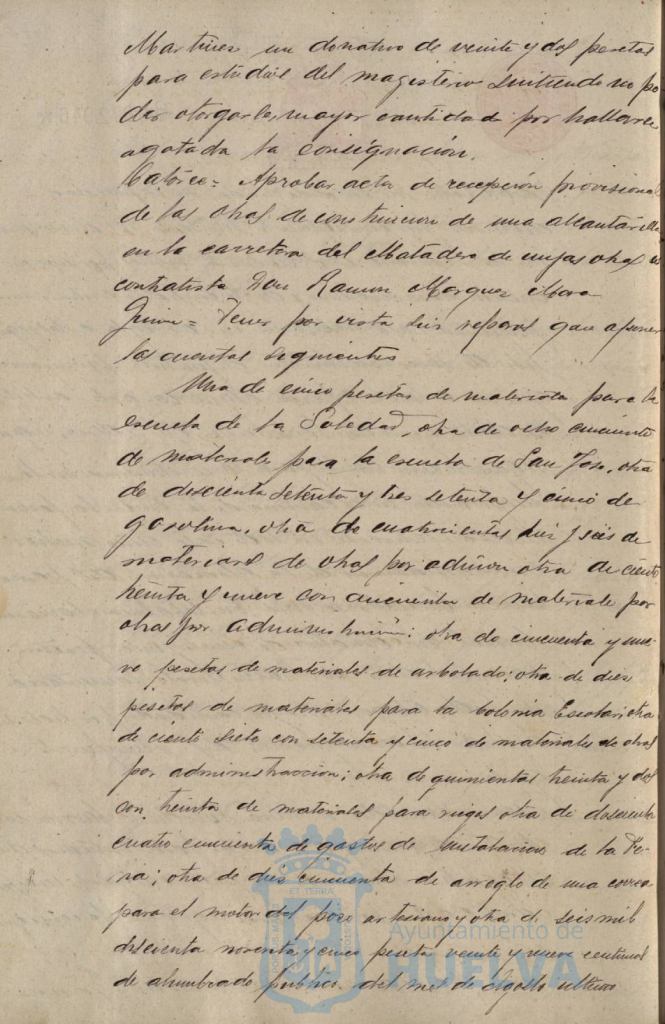 Martinez un donativo de veinte y dos pesetas
para estudios del magisterio sintiendo no po-
der otorgarle mayor cantidad por hallarse
agotada la consignación.
Catorce = Aprobar acta de recepción provisional
de las obras de construccion de una alcantarilla
en la carretera del Matadero de cuyas obras es
contratista Don Ramon Marquez Mora
Quince = Tener por vista sin reparos que oponer
las cuentas siguientes
Una de cinco pesetas de materiales para la
escuela de la Soledad, otra de ocho cincuenta
de materiales para la escuela de San Jose, otra
de doscientas setenta y tres setenta y cinco de
gasolina, otra de cuatrocientas diez y seis de
materiales de obras por admon otra de ciento
treinta y nueve con cincuenta de materiales por
obras por administración: otra de cincuenta y nue-
ve pesetas de materiales de arbolado; otra de diez
pesetas de materiales para la Colonia Escolar; otra
de ciento siete con setenta y cinco de materiales de obras
por administraccion; otra de quinientas treinta y dos
con treinta de materiales para otra de doscientas
cuatro cincuenta de gastos de instalacion de la Fe-
ria; otra de diez cincuenta de arreglo de una correa
para el motor del pozo artesiano y otra de seis mil
doscienta noventa y cinco peseta veinte y nueve centimos
de alumbrado publico del mes de Agosto ultimo
Ayuntamiento de
HUELVA